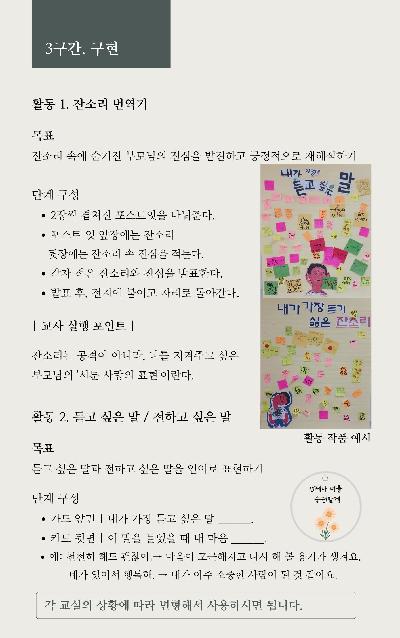 3구간. 구현
활동 1. 잔소리 번역기
목표
잔소리 속에 숨겨진 부모님의 진심을 발견하고 긍정적으로 재해석하기
단계 구성
• 2장씩 겹쳐진 포스트잇을 나눠준다.
• 포스트 잇 앞장에는 잔소리
뒷장에는 잔소리 속 진심을 적는다.
• 각자 적은 잔소리와 진심을 발표한다.
• 발표 후, 전지에 붙이고 자리로 돌아간다.
내가 가장
듣고 싶은 말
내가 가장 듣기
싫은 잔소리
| 교사 실행 포인트 |
잔소리는 공격이 아니라, 너를 지켜주고 싶은
부모님의 '서툰 사랑의 표현'이란다.
활동 작품 예시
활동 2. 듣고 싶은 말 / 전하고 싶은 말
목표
듣고 싶은 말과 전하고 싶은 말을 언어로 표현하기
단계 구성
• 카드 앞면 | 내가 가장 듣고 싶은 말 ______.
• 카드 뒷면 | 이 말을 들었을 때 내 마음 ______.
• 예: 천천히 해도 괜찮아 → 마음이 포근해지고 다시 해 볼 용기가 생겨요.
네가 있어서 행복해. → 내가 아주 소중한 사람이 된 것 같아요.
각 교실의 상황에 따라 변형해서 사용하시면 됩니다.